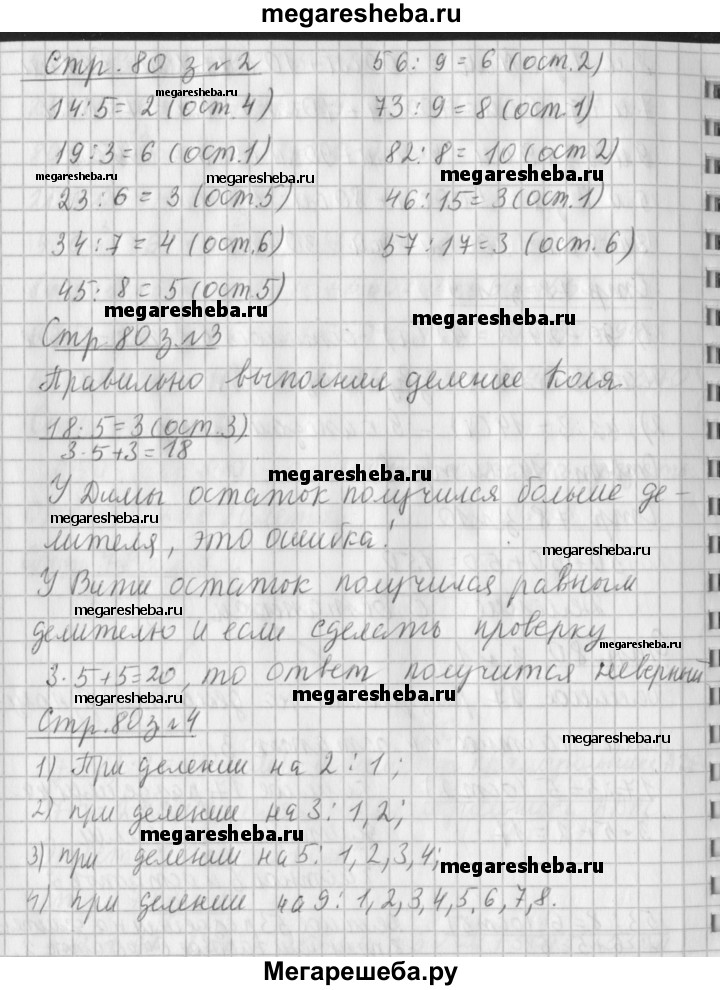 megaresheba.ru
Стр. 80 з №2
14:5=2 (ост.4)
19:3=6 (ост.1)
23:6=3 (ост.5)
34:7=4 (ост.6)
45:8=5 (ост.5)
56:9=6 (ост.2)
73:9=8 (ост.1)
82:8=10 (ост 2)
46:15=3 (ост.1)
57:17=3 (ост.6)
megaresheba.ru
megaresheba.ru
megaresheba.ru
megaresheba.ru
megaresheba.ru
megaresheba.ru
Стр. 80 з.№3
Правильно выполнил деление Коля
18·5=3 (ост.3)
3·5+3=18
megaresheba.ru
У Димы остаток получился больше де-
megaresheba.ru
лителя, это ошибка!
megaresheba.ru
У Вити остаток получился равным
megaresheba.ru
делителю и если сделать проверку
megaresheba.ru
3·5+5=20, то ответ получится неверный
megaresheba.ru
megaresheba.ru
Стр. 80 з №4
megaresheba.ru
1) При делении на 2: 1;
2) при делении на 3: 1,2;
megaresheba.ru
3) при делении на 5: 1,2,3,4;
megaresheba.ru
4) при делении на 9: 1,2,3,4,5,6,7,8.
Мегарешеба.ру